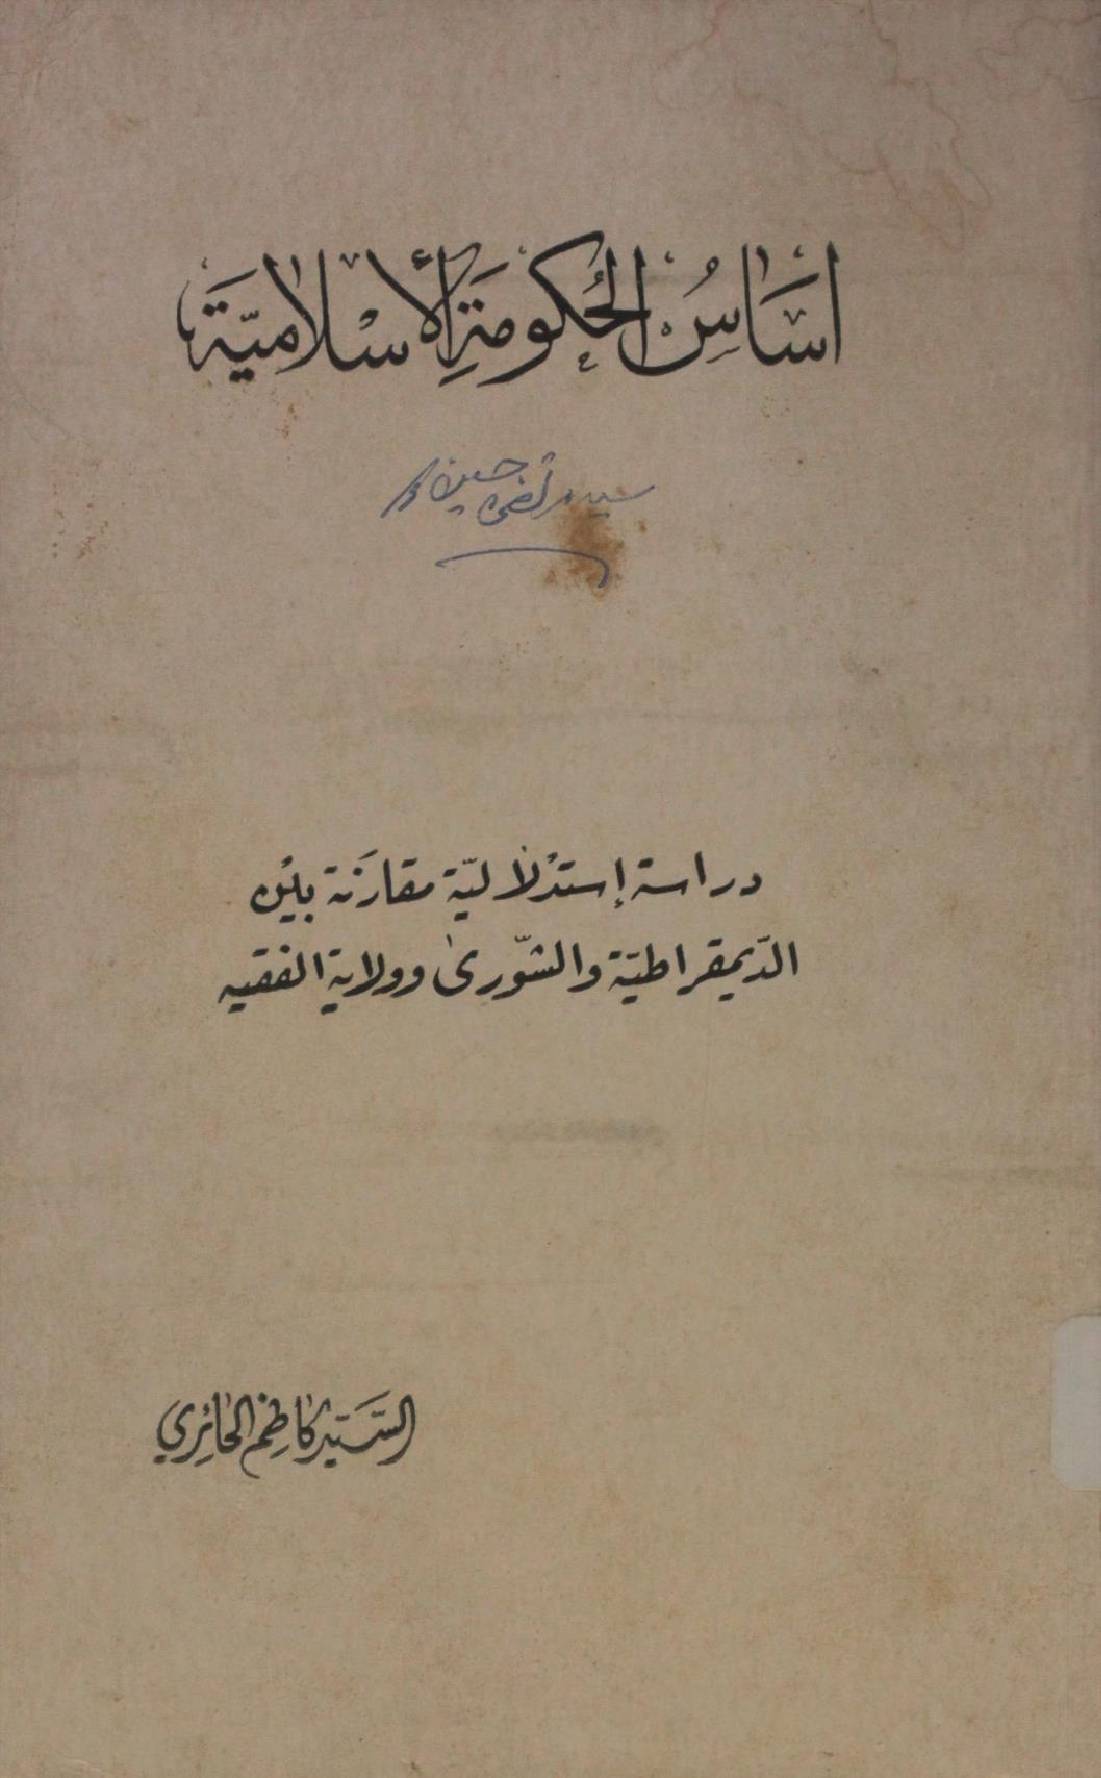 اسَاسُ الحُكومَةِ الأسْلاميّة
سید مرتضی حسینی
دراسة إستدْلاليّة مقارَنة بيْن
الدّيمقراطيّة والشّورىٰ وولاية الفقيه
السَّيد كاظِم الحائِري